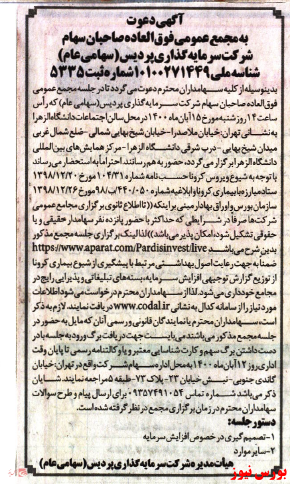 آگهی دعوت
به مجمع عمومی فوق العاده صاحبان سهام
شرکت سرمایه گذاری پردیس (سهامی عام)
شناسه ملی ۱۰۱۰۰۲۷۱۴۴۹ شماره ثبت ۵۳۳۵
بدینوسیله از کلیه سهامداران محترم دعوت می گردد تا در جلسه مجمع عمومی
فوق العاده صاحبان سهام شرکت سرمایه گذاری پردیس (سهامی عام) که رأس
ساعت ۱۴ روز شنبه مورخ ۱۵ آبان ماه ۱۴۰۰ در محل سالن اجتماعات دانشگاه الزهرا
به نشانی تهران: خیابان ملاصدرا - خیابان شیخ بهایی شمالی - ضلع شمال غربی
میدان شیخ بهایی - درب شرقی دانشگاه الزهرا - مرکز همایش های بین المللی
دانشگاه الزهرا برگزار می گردد، حضور به هم رسانند. احتراماً به استحضار می رساند
با توجه به شیوع ویروس کرونا حسب نامه شماره ۱۰۴/۳۱ مورخ ۱۳۹۸/۱۲/۲۰
ستاد مبارزه با بیماری کرونا و ابلاغیه شماره ۴۴۰/۰۵۰/ب۹۸ مورخ ۱۳۹۸/۱۲/۲۶
سازمان بورس و اوراق بهادار مبنی بر اینکه ((تا اطلاع ثانوی برگزاری مجامع عمومی
شرکت ها صرفاً در شرایطی که حداکثر با حضور پانزده نفر سهامدار حقیقی و یا
حقوقی تشکیل شود، امکان پذیر می باشد)) لذا لینک برگزاری جلسه مجمع مذکور
بدین شرح می باشد https://www.aparat.com/Pardisinvest/live
ضمناً به جهت رعایت اصول بهداشتی مرتبط با پیشگیری از شیوع بیماری کرونا
از توزیع گزارش توجیهی افزایش سرمایه، بسته های تبلیغاتی و پذیرایی رایج در
مجامع خودداری می شود. لذا از سهامداران محترم درخواست می شود اطلاعات
مورد نیاز را از سامانه کدال به نشانی www.codal.ir دریافت نمایند. لازم به ذکر
است، سهامداران محترم یا نمایندگان قانونی و رسمی آنان که مایل به حضور در
جلسه مجمع مذکور می باشند می بایست جهت دریافت برگ ورود به جلسه با در
دست داشتن برگ سهم و کارت شناسایی معتبر و یا وکالتنامه رسمی تا پایان وقت
اداری روز ۱۲ آبان ماه ۱۴۰۰ به محل اداره سهام شرکت واقع در تهران: خیابان
گاندی جنوبی - نبش خیابان ۲۳ - پلاک ۷۳ - طبقه ۵ مراجعه نمایند. شایان
ذکر می باشد شماره ۰۹۳۵۷۴۹۱۰۵۴ برای ارسال پیام و طرح سوالات
سهامداران محترم در زمان برگزاری مجمع در نظر گرفته شده است.
دستور جلسه:
۱- تصمیم گیری در خصوص افزایش سرمایه
۲- سایر موارد
هیأت مدیره شرکت سرمایه گذاری پردیس (سهامی عام)
بورس نیوز